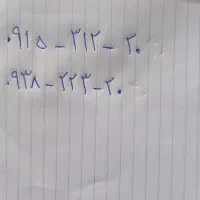 ۰۹۱۵-۳۱۲-۲۰
۰۹۳۸-۲۲۳-۲۰